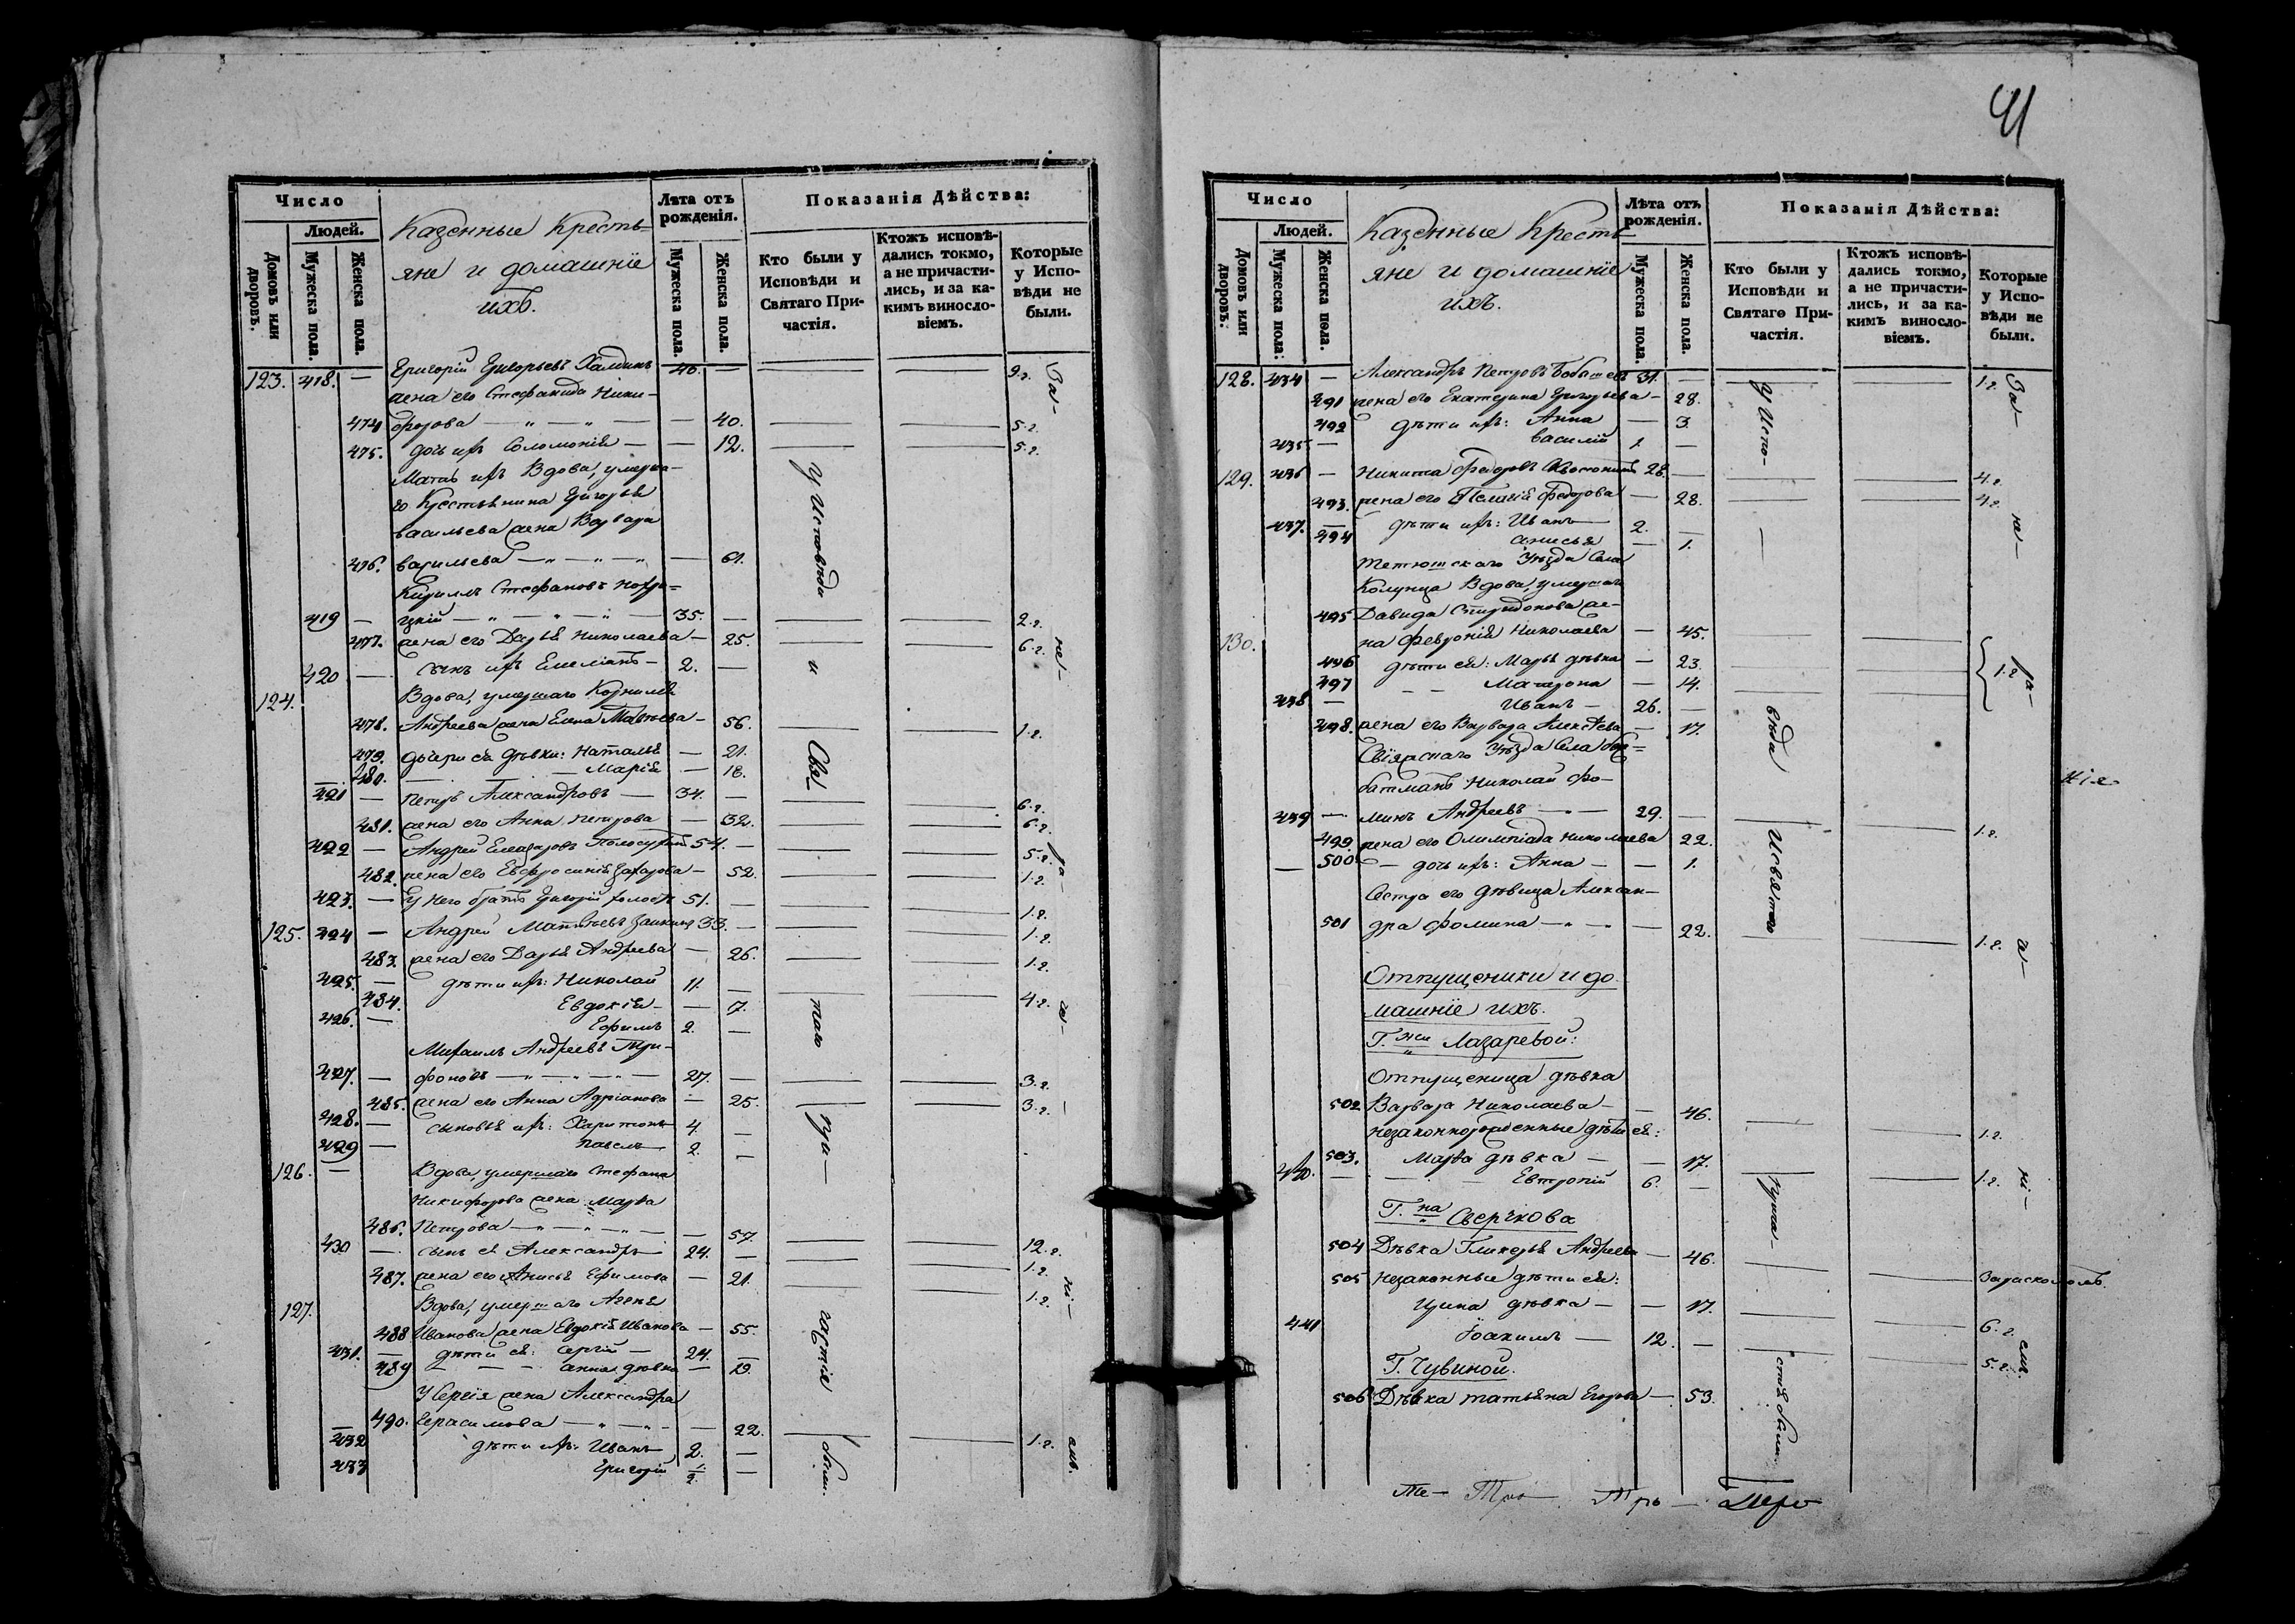 41
Число
Людей.
Домовъ или дворовъ.
Мужеска пола.
Женска пола.
Казенные Кресть-
яне и домашніе
ихъ.
Лѣта отъ рожденія.
Мужеска пола.
Женска пола.
Показанія Дѣйства:
Кто были у Исповѣди и Святаго Причастія.
Ктожъ исповѣ-
дались токмо,
а не причасти-
лись, и за ка-
кимъ винословіемъ.
Которые
у Испо-
вѣди не
были.
123. 418. — Григорій Григорьевъ 40. — 9.г.
жена его Стефанида Ники-
474 форова — „ — „ — — 40. 5.г.
475. дочь ихъ Соломонія — — 12. 5.г.
Мать ихъ Вдова, умерша-
го Крестьянина Григорья
Васильева жена Варвара
476. Васильева — „ — „ — „ — 61.
Кириллъ Стефановъ
419 — — „ — „ — „ — 35. — 2.г.
477. жена его Дарья Николаева — 25. 6.г.
420 — сынъ ихъ Емеліанъ — 2. —
124. Вдова, умершаго Корнилія
478. Андреева жена Елена Матвѣева — 56. 1.г.
479. дочери ея дѣвки: Наталья — 21.
480. — — Марія — 18.
421 — Петръ Александровъ — 34. — 6.г.
481. жена его Анна Петрова — 32. 6.г.
422 — Андрей Елеазаровъ 54. — 5.г.
482. жена его Евфросинія Захарова — 52. 1.г.
423. — У него братъ Григорій холостъ 51. — 1.г.
125. 424 — Андрей Матвѣевъ Заикинъ 33. — 1.г.
483. жена его Дарья Андреева — 26. 1.г.
425. — дѣти ихъ: Николай 11. — 4.г.
484. Евдокія — — 7.
426. — Ефимъ 2. —
Михаилъ Андреевъ Три-
427. — фоновъ — „ — „ — „ — 27. — 3.г.
485. жена его Анна Адріанова — 25. 3.г.
428. — сыновья ихъ: Харитонъ 4. —
429 — Павелъ 2. —
126. — Вдова, умершаго Стефана
Никифорова жена Марфа
486. Петрова — „ — „ — „ — 57. 12.г.
430 — сынъ ея Александръ 24. — 1.г.
487. жена его Анисья Ефимова — 21. 1.г.
127. Вдова, умершаго
488 Иванова жена Евдокія Иванова — 55.
431. — дѣти ея: Сергій — 24. —
489 — — Анна дѣвка — 19.
У Сергія жена Александра
490. Герасимова — „ — „ — 22. 1.г.
432 дѣти ихъ: Иванъ 2. —
433 Григорій ½ —
У Исповѣди и Свя-
таго При-
частія были.
За-
не-
ра-
де-
ні-
емъ.
Число
Людей.
Домовъ или дворовъ.
Мужеска пола.
Женска пола.
Казенные Кресть-
яне и домашніе
ихъ.
Лѣта отъ рожденія.
Мужеска пола.
Женска пола.
Показанія Дѣйства:
Кто были у Исповѣди и Святаго Причастія.
Ктожъ исповѣ-
дались токмо,
а не причасти-
лись, и за ка-
кимъ винословіемъ.
Которые
у Испо-
вѣди не
были.
128. 434 — Александръ Петровъ 31. — 1.г.
491 жена его Екатерина Григорьева — 28.
492 дѣти ихъ: Анна — 3
435 — Василій 1 —
129. 436 — Никита Федоровъ 28. — 4.г.
493. жена его Пелагія Федорова — 28. 4.г.
437. — дѣти ихъ: Иванъ 2. —
494 Анисья — 1.
Тетюшскаго Уѣзда Села
Колунца Вдова, умершаго
495 Давида Спиридонова же-
130. на Февронія Николаева — 45.
496 дѣти ея: Марья дѣвка — 23. 1.г.
497 — — Матрона — 14.
438 — Иванъ — 26. —
498. жена его Варвара Алексѣева — 17.
Свіяжскаго Уѣзда Села
Николай Фо-
439 — минъ Андреевъ — „ — 29. — 1.г.
499. жена его Олимпіада Николаева 22.
500 — дочь ихъ: Анна — — 1.
Сестра его дѣвица Алексан-
501 дра Фомина — „ — „ — 22. 1.г.
Отпущеники и до
машніе ихъ.
Г.жи Лазаревой:
Отпущеница дѣвка
502 Варвара Николаева — — 46. 1.г.
незаконнорожденные дѣти ея:
503. Марѳа дѣвка — — 17. 1.г.
440. — — Евтропій 6. —
Г.на Сверчкова
504 Дѣвка Гликерья Андреева — 46. За расколомъ.
505 незаконные дѣти ея:
Ирина дѣвка — — 17. 6.г.
441 Іоакимъ — 12. — 5.г.
Г. Чувиной.
506 Дѣвка Татьяна Егорова — 53.
У Испо-
вѣди
И Святаго
За-
не-
ра-
ні-
емъ.
нія